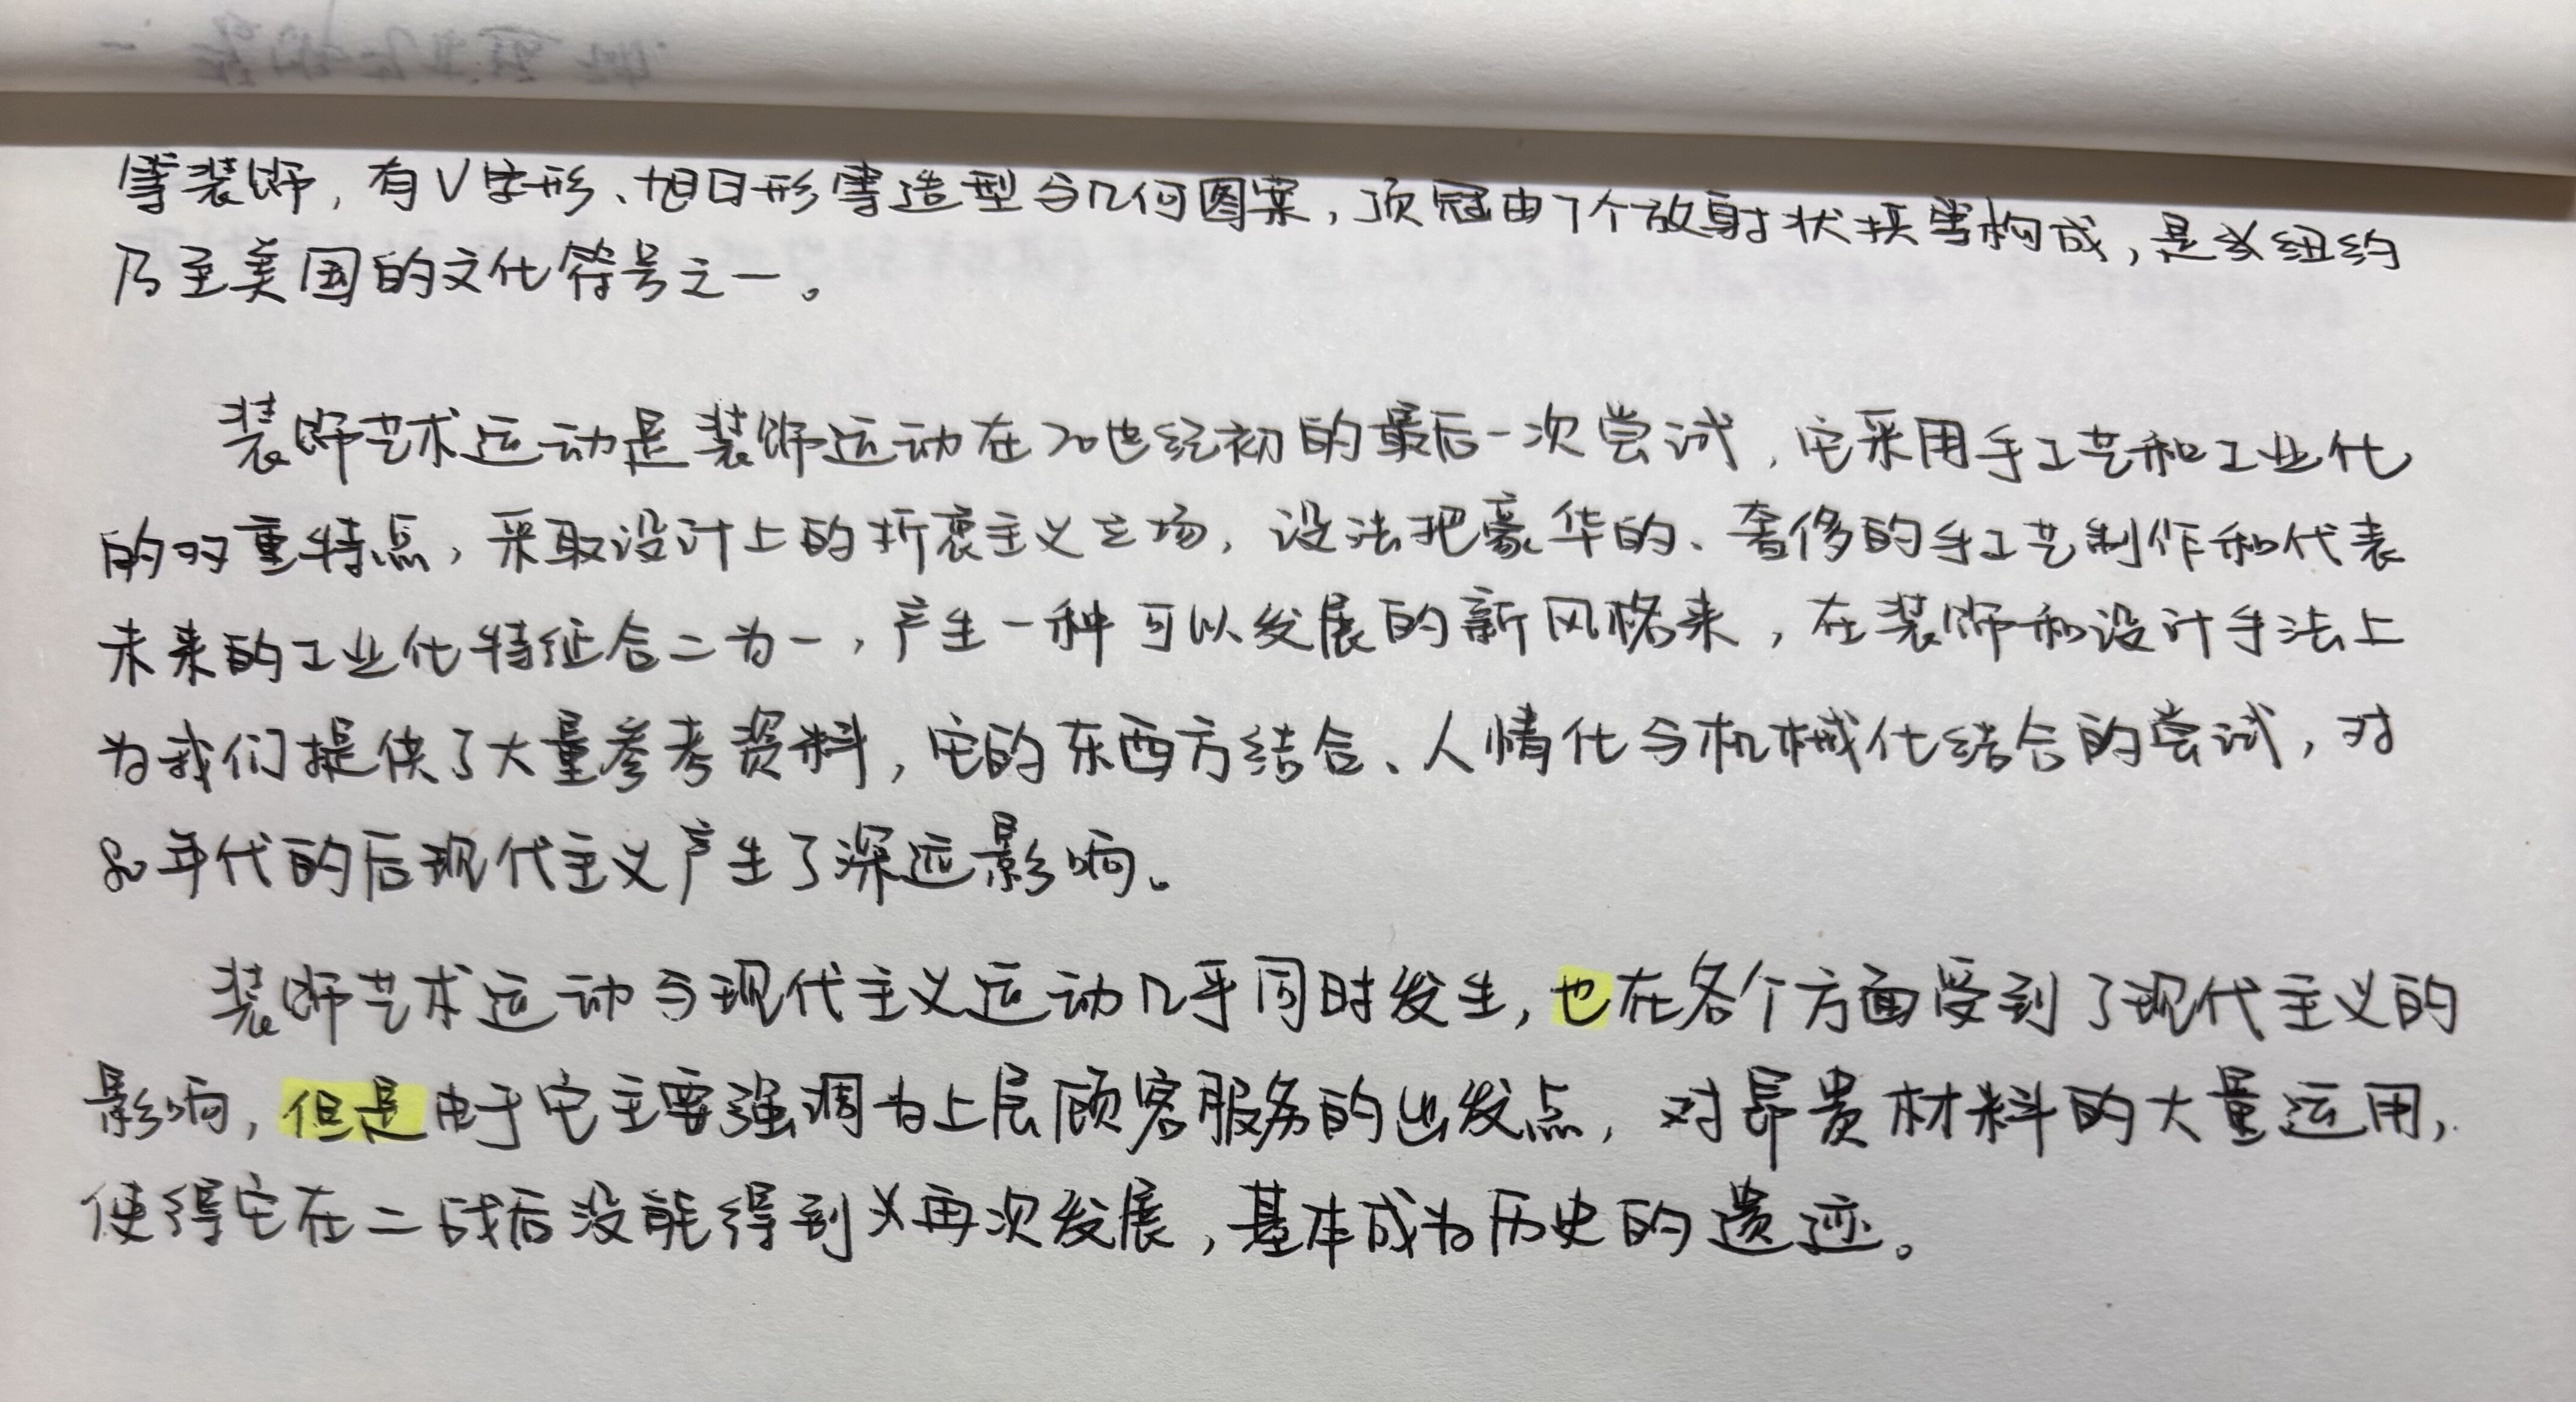 等装饰，有V字形、旭日形等造型与几何图案，顶冠由7个放射状拱等构成，是纽约
乃至美国的文化符号之一。
装饰艺术运动是装饰运动在20世纪初的最后一次尝试，它采用手工艺和工业化
的双重特点，采取设计上的折衷主义立场，设法把豪华的、奢侈的手工艺制作和代表
未来的工业化特征合二为一，产生一种可以发展的新风格来，在装饰和设计手法上
为我们提供了大量参考资料，它的东西方结合、人情化与机械化结合的尝试，对
80年代的后现代主义产生了深远影响。
装饰艺术运动与现代主义运动几乎同时发生，也在各个方面受到了现代主义的
影响，但是由于它主要强调为上层顾客服务的出发点，对昂贵材料的大量运用，
使得它在二战后没能得到再次发展，基本成为历史的遗迹。